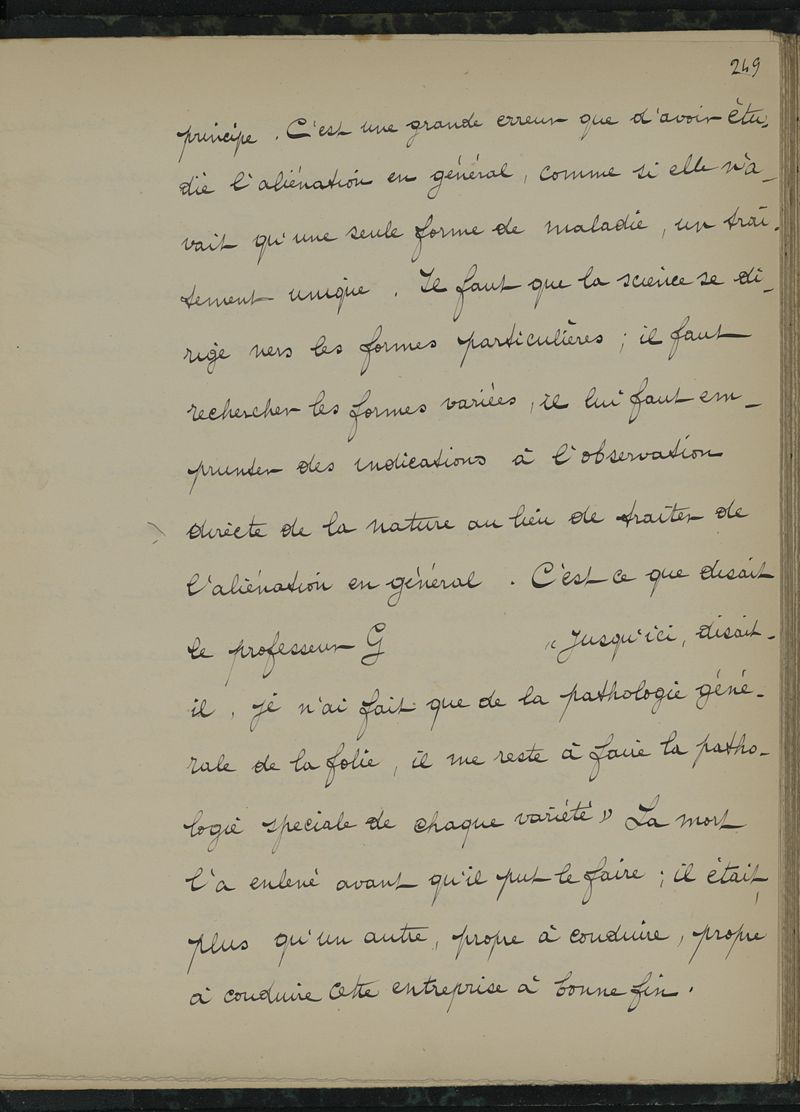 249
principe. C'est une grande erreur que d'avoir étu-
dié l'aliénation en général, comme si elle n'a-
vait qu'une seule forme de maladie, un trai-
tement unique. Il faut que la science se di-
rige vers les formes particulières ; il faut
rechercher les formes variées, il lui faut em-
prunter des indications à l'observation
directe de la nature au lieu de traiter de
l'aliénation en général. C'est ce que disait
le professeur G « Jusqu'ici, disait-
il, je n'ai fait que de la pathologie géné-
rale de la folie, il me reste à faire la patho-
logie speciale de chaque variété » La mort
l'a enlevé avant qu'il put le faire ; il était,
plus qu'un autre, propre à conduire, propre
à conduire cette entreprise à bonne fin.